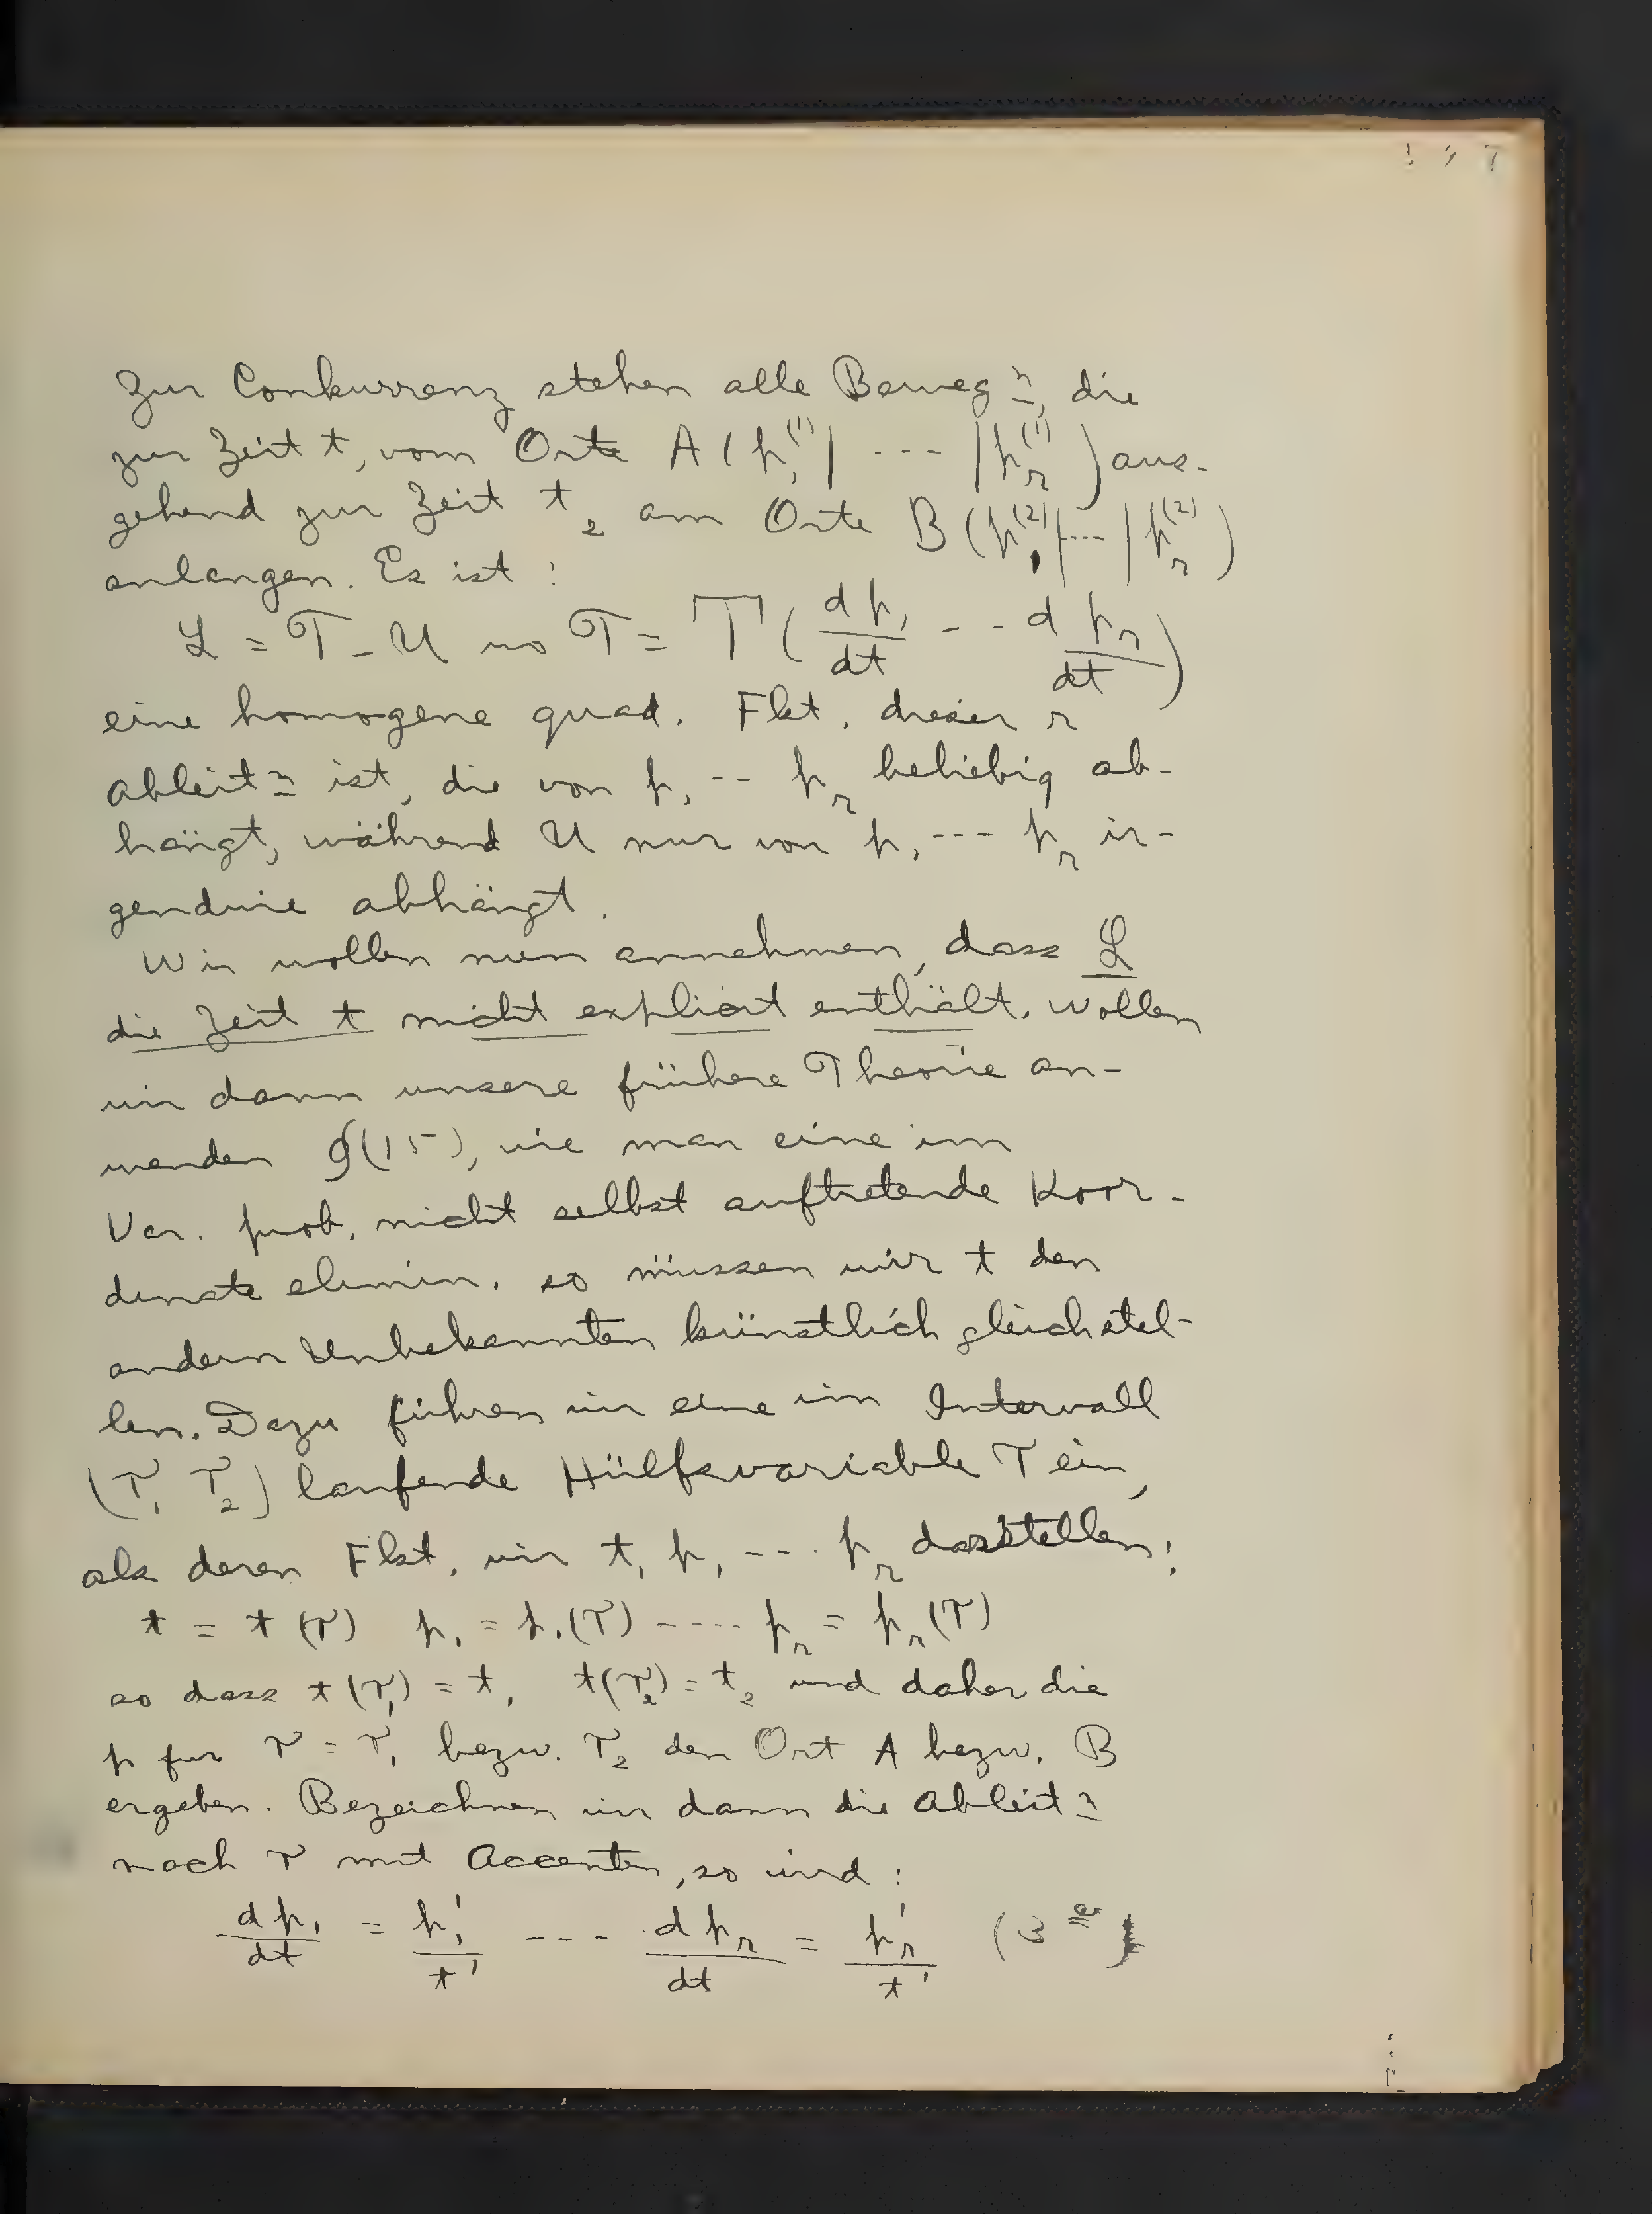 Zur Conkurrenz stehen alle Beweg⁼ⁿ, die
zur Zeit t₁ vom Orte A (p₁⁽¹⁾| --- |pᵣ⁽¹⁾) aus-
gehend zur Zeit t₂ am Orte B (p₁⁽²⁾|---|pᵣ⁽²⁾)
anlangen. Es ist :
L = T - U wo T = T (dp₁/dt -- dpᵣ/dt)
eine homogene quad. Fkt. dieser r
Ableit⁼ⁿ ist, die von p₁ -- pᵣ beliebig ab-
hängt, während U nur von p₁ --- pᵣ ir-
gendwie abhängt.
Wir wollen nun annehmen, dass L
die Zeit t nicht explicit enthält. Wollen
wir dann unsere frühere Theorie an-
wenden (15), wie man eine im
Var. prob. nicht selbst auftretende Koor-
dinate elimin. so müssen wir t den
andern Unbekannten künstlich gleichstel-
len. Dazu führen wir eine im Intervall
(τ₁ τ₂) laufende Hülfsvariable τ ein,
als deren Fkt. wir t, p₁ --- pᵣ darstellen:
t = t (τ) p₁ = p₁(τ) ---- pᵣ = pᵣ(τ)
so dass t (τ₁) = t₁ t(τ₂) = t₂ und daher die
p für τ = τ₁ bezw. τ₂ den Ort A bezw. B
ergeben. Bezeichnen wir dann die Ableit⁼ⁿ
nach τ mit Accenten, so wird :
dp₁/dt = p₁'/t' --- dpᵣ/dt = pᵣ'/t' (3ᵃ)